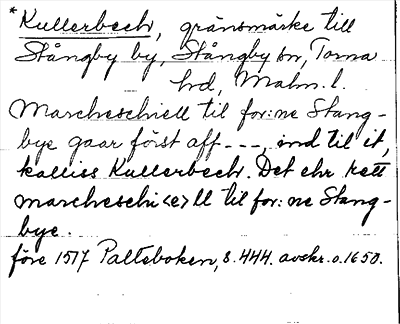 *Kullerbech, gränsmärke till
Stångby by, Stångby sn, Torna
hd, Malm. l.
Marcheschiell til for:ne Stang-
bye gaar först aff ---, ind til it,
kalliss Kullerbech. Det ehr rett
marcheschi<e>ll til for:ne Stang-
bye.
före 1517 Palteboken, s. 444. avskr. o. 1650.